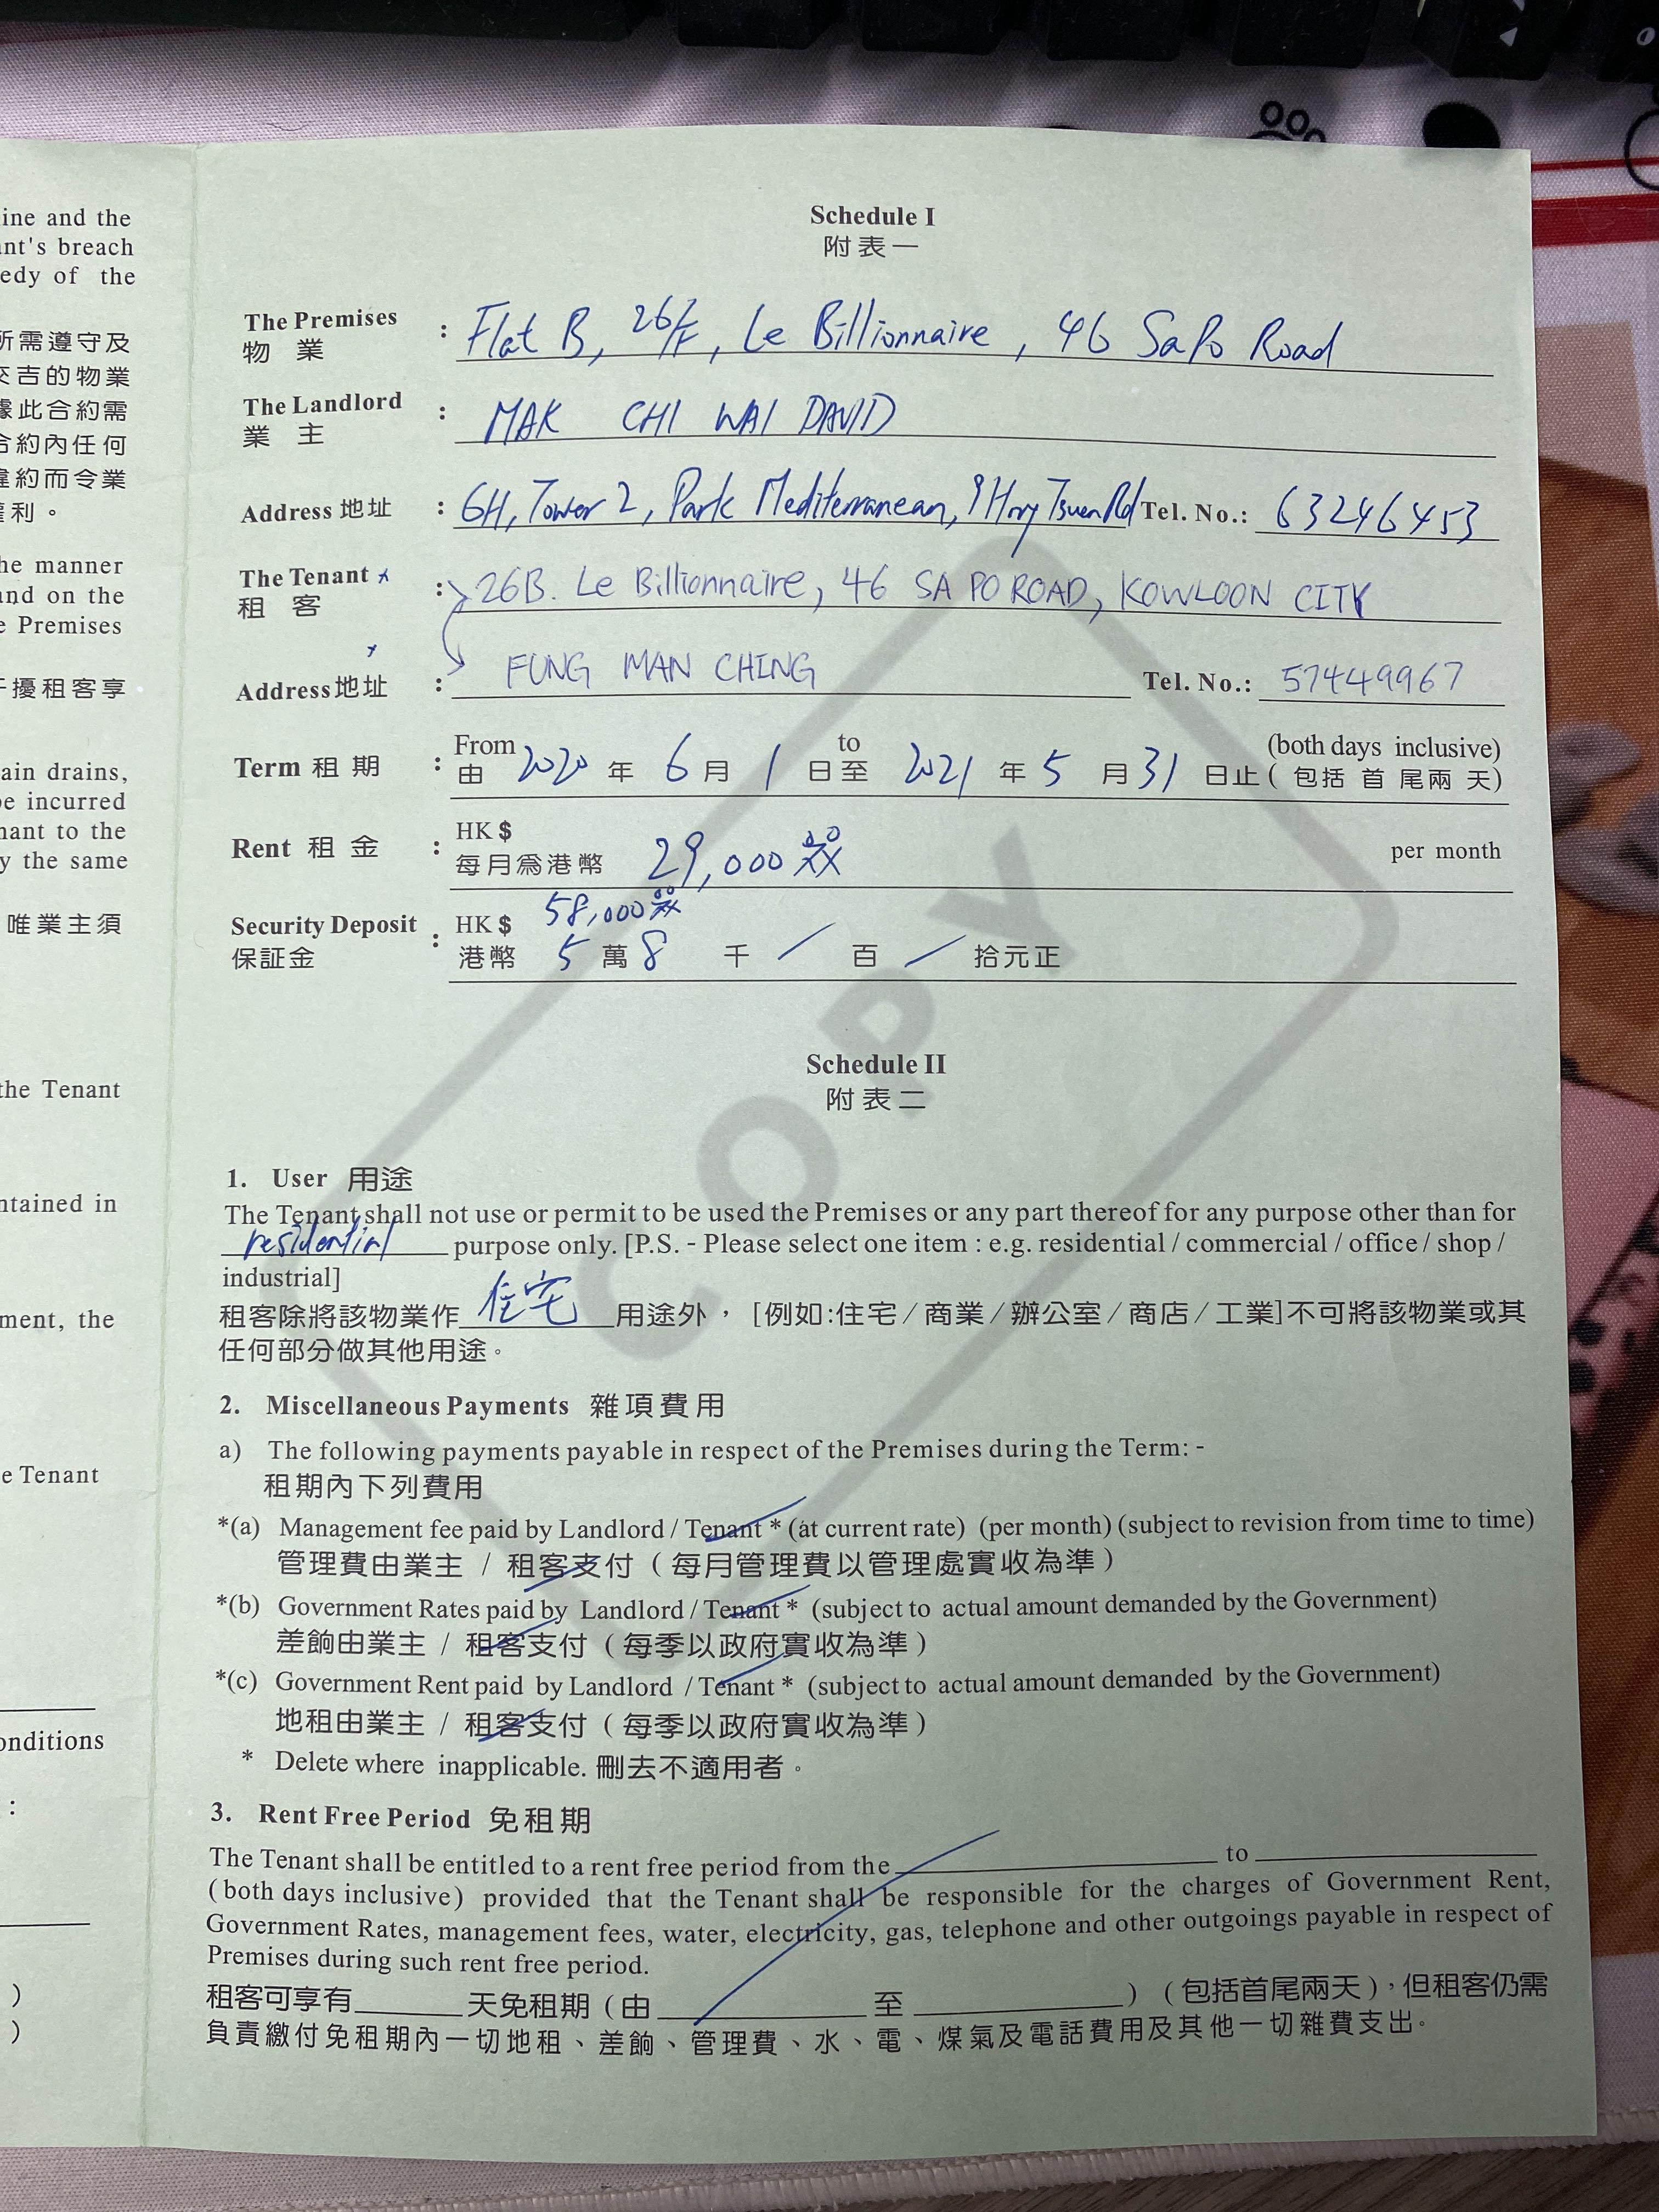 ine and the
ant's breach
edy of the
所需遵守及
交吉的物業
據此合約需
合約內任何
違約而令業
權利。
he manner
and on the
e Premises
干擾租客享
ain drains,
be incurred
nant to the
y the same
唯業主須
the Tenant
ntained in
ment, the
e Tenant
onditions
:
)
)
Schedule I
附表一
The Premises : Flat B, 26/F, Le Billionnaire, 46 Sa Po Road
物 業
The Landlord : MAK CHI WAI DAVID
業 主
Address 地址 : 6H, Tower 2, Park Mediterranean, 9 Hong Tsuen Rd Tel. No.: 63246453
The Tenant : 26B. Le Billionnaire, 46 SA PO ROAD, KOWLOON CITY
租 客
Address 地址 : FUNG MAN CHING Tel. No.: 57449967
From to (both days inclusive)
Term 租 期 : 由 2020 年 6 月 1 日至 2021 年 5 月 31 日止 ( 包括 首 尾兩 天)
HK $
Rent 租 金 : 每月為港幣 29,000 per month
Security Deposit : HK $ 58,000
保証金 港幣 5 萬 8 千 / 百 / 拾元正
COPY
Schedule II
附表二
1. User 用途
The Tenant shall not use or permit to be used the Premises or any part thereof for any purpose other than for
residential purpose only. [P.S. - Please select one item : e.g. residential / commercial / office / shop /
industrial]
租客除將該物業作 住宅 用途外， [例如:住宅/商業/辦公室/商店/工業]不可將該物業或其
任何部分做其他用途。
2. Miscellaneous Payments 雜項費用
a) The following payments payable in respect of the Premises during the Term: -
租期內下列費用
*(a) Management fee paid by Landlord / Tenant * (at current rate) (per month) (subject to revision from time to time)
管理費由業主 / 租客支付 ( 每月管理費以管理處實收為準 )
*(b) Government Rates paid by Landlord / Tenant * (subject to actual amount demanded by the Government)
差餉由業主 / 租客支付 ( 每季以政府實收為準 )
*(c) Government Rent paid by Landlord / Tenant * (subject to actual amount demanded by the Government)
地租由業主 / 租客支付 ( 每季以政府實收為準 )
* Delete where inapplicable. 刪去不適用者。
3. Rent Free Period 免租期
The Tenant shall be entitled to a rent free period from the ______ to ______
(both days inclusive) provided that the Tenant shall be responsible for the charges of Government Rent,
Government Rates, management fees, water, electricity, gas, telephone and other outgoings payable in respect of
Premises during such rent free period.
租客可享有______天免租期 ( 由 ______ 至 ______ ) ( 包括首尾兩天 )，但租客仍需
負責繳付免租期內一切地租、差餉、管理費、水、電、煤氣及電話費用及其他一切雜費支出。